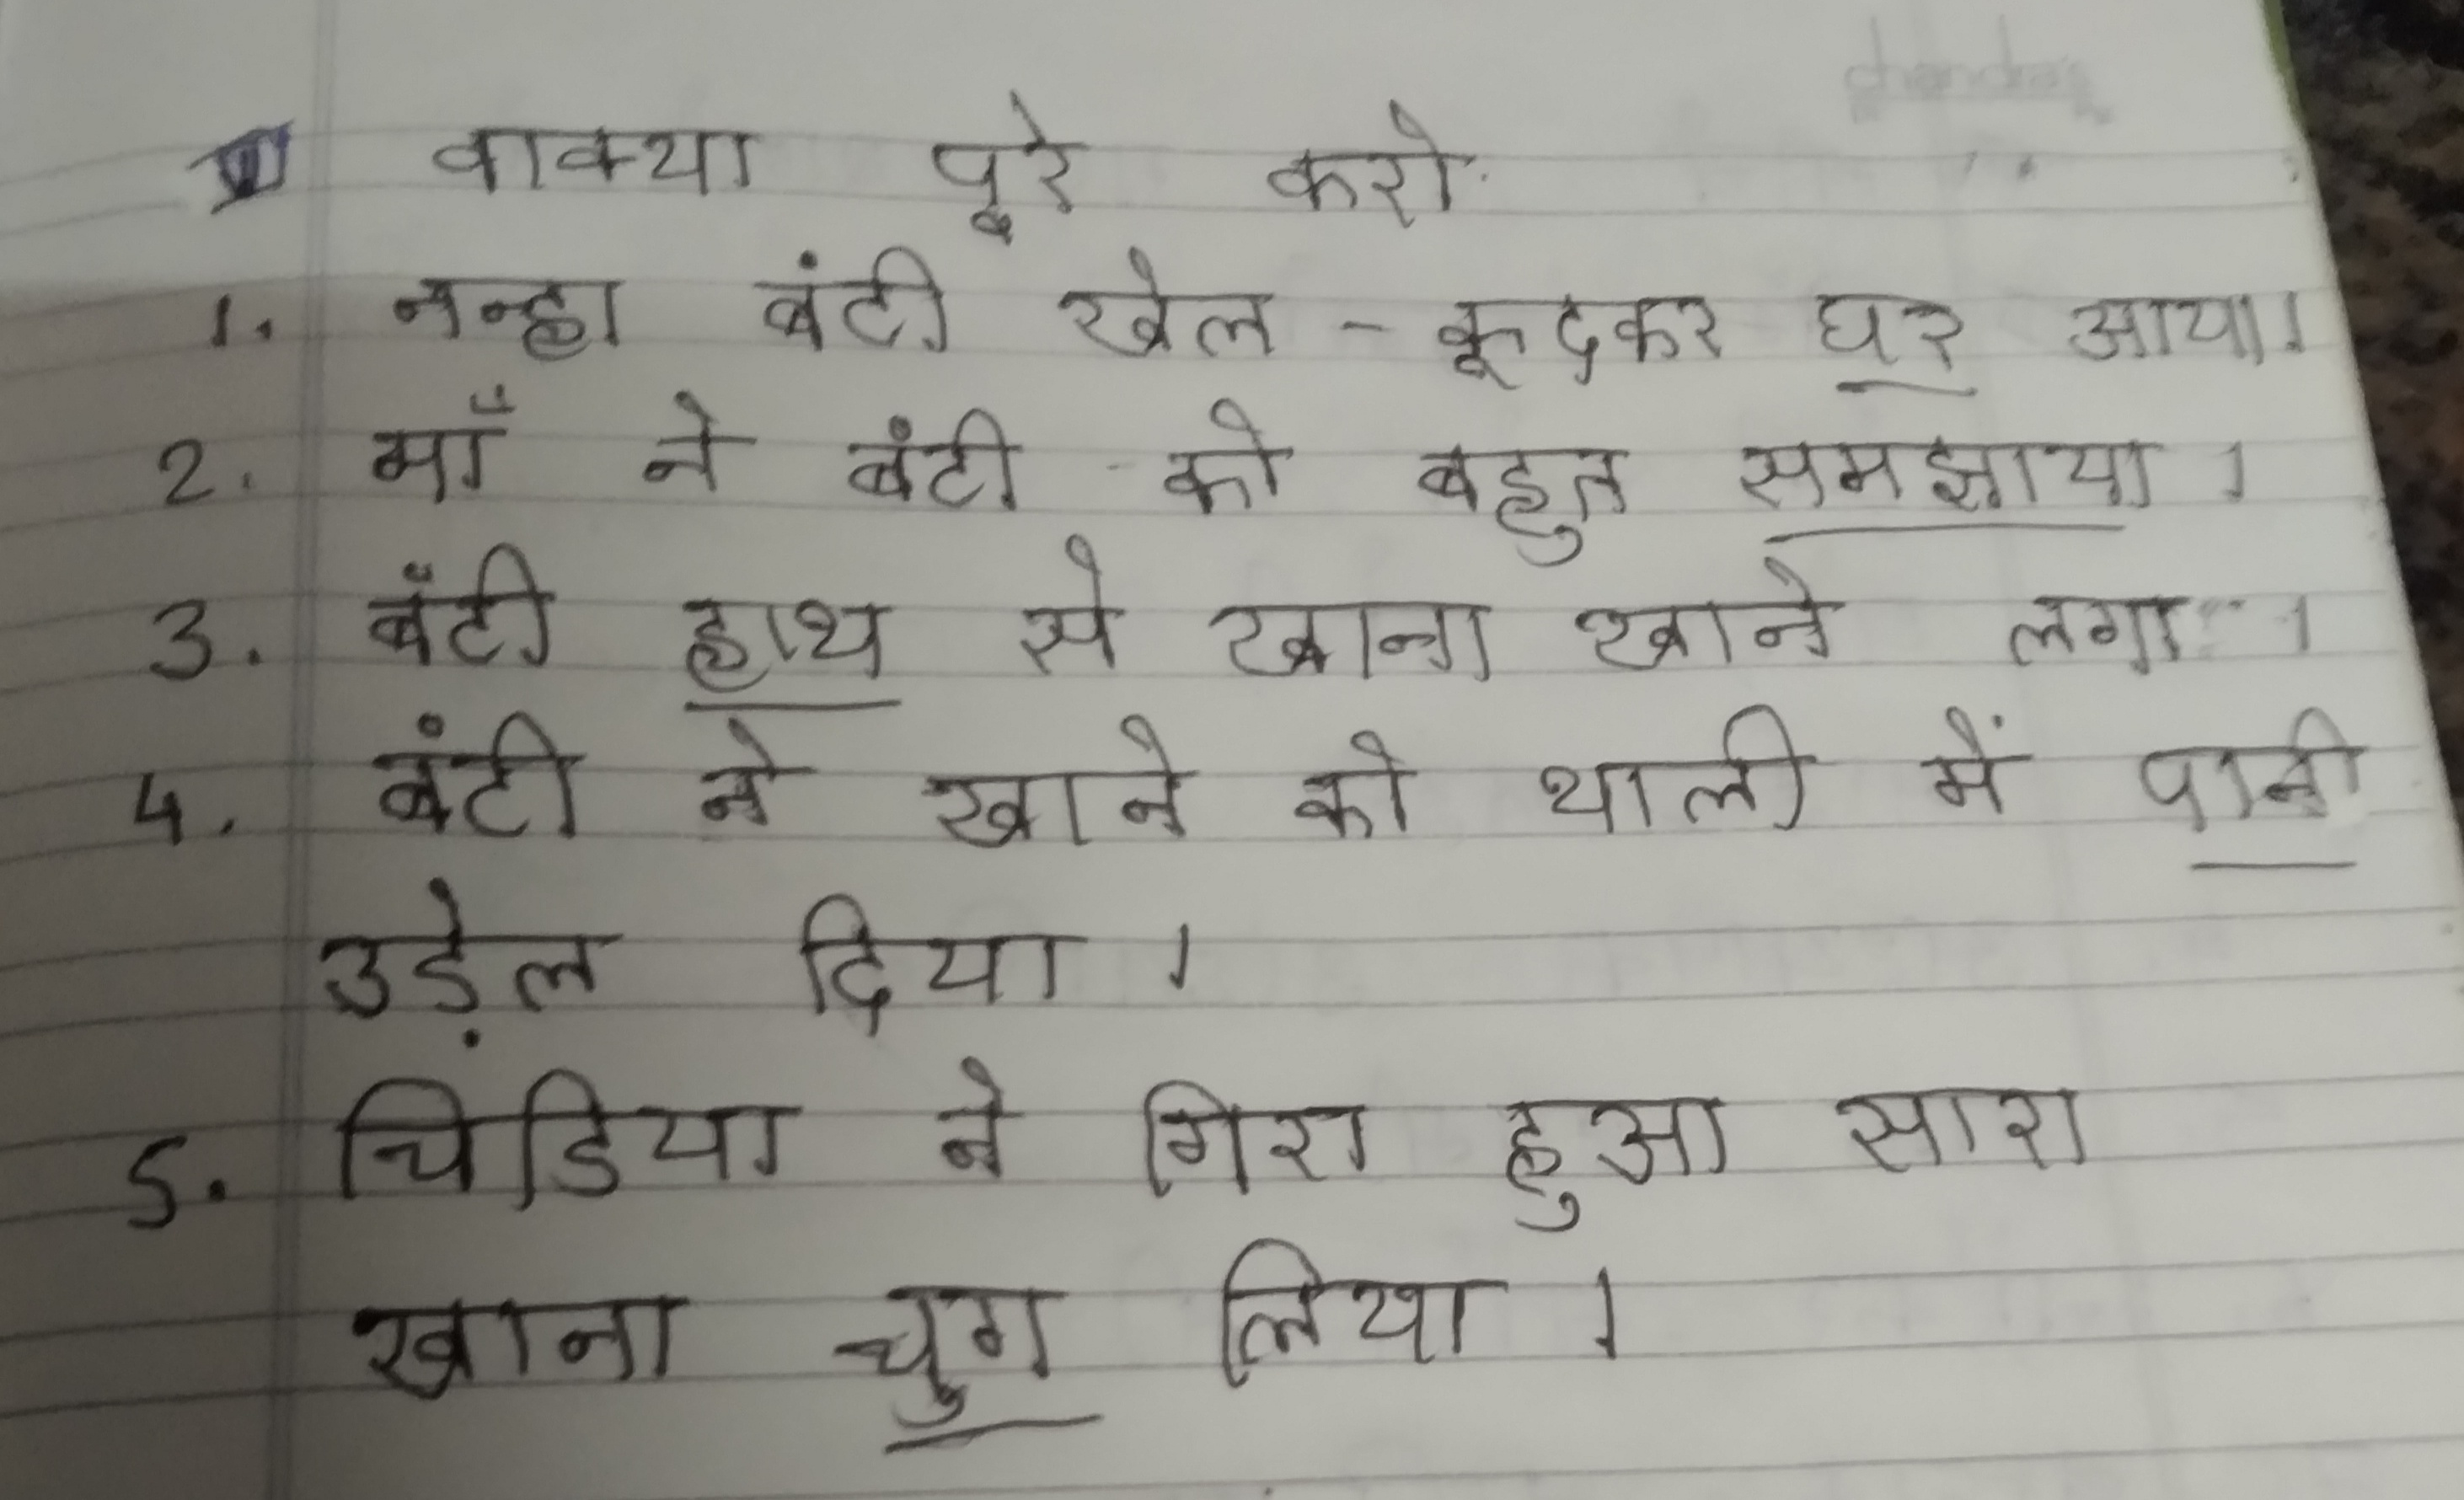 वाक्या पूरे करो
1. नन्हा बंटी खेल - कूदकर घर आया।
2. माँ ने बंटी को बहुत समझाया।
3. बँटी हाथ से खाना खाने लगा।
4. बंटी ने खाने को थाली में पानी
उड़ेल दिया।
5. चिडिया ने गिरा हुआ सारा
खाना चुग लिया।